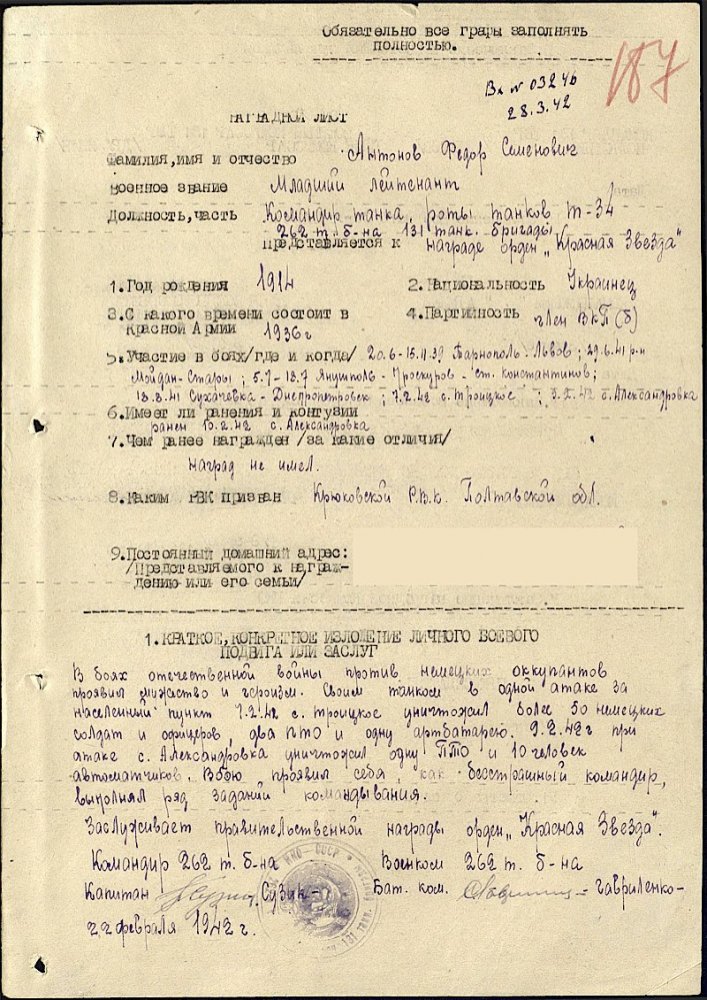 Обязательно все графы заполнять
полностью.
187
Вх № 03246
28.3.42
НАГРАДНОЙ ЛИСТ
Фамилия, имя и отчество Антонов Федор Семенович
Военное звание Младший лейтенант
Должность, часть Командир танка, роты танков Т-34
262 т. б-на 131 танк. бригады
Представляется к награде орден „Красная Звезда"
1. Год рождения 1914 2. Национальность Украинец
3. С какого времени состоит в Красной Армии 1936 г 4. Партийность член ВКП(б)
5. Участие в боях /где и когда/ 20.6-15.11.39 Тарнополь-Львов; 29.6.41 р-н
Мойдан-Стары; 5.7-18.7 Янушполь-Проскуров-ст. константинов;
18.8.41 Сухачевка-Днепропетровск; 7.2.42 с. Троицкое; 9.2.42 с. Александровка
6. Имеет ли ранения и контузии
ранен 10.2.42 с. Александровка
7. Чем ранее награжден /за какие отличия/
наград не имел.
8. Каким РВК призван Крюковской Р.В.К. Полтавской обл.
9. Постоянный домашний адрес:
/Представляемого к награж-
дению или его семьи/
1. КРАТКОЕ, КОНКРЕТНОЕ ИЗЛОЖЕНИЕ ЛИЧНОГО БОЕВОГО
ПОДВИГА ИЛИ ЗАСЛУГ
В боях отечественной войны против немецких оккупантов
проявил мужество и героизм. Своим танком в одной атаке за
населенный пункт 7.2.42 с. Троицкое уничтожил более 50 немецких
солдат и офицеров, два ПТО и одну артбатарею. 9.2.42г при
атаке с. Александровка уничтожил одну ПТО и 10 человек
автоматчиков. В бою проявил себя, как бесстрашный командир,
выполнял ряд заданий командывания.
Заслуживает правительственной награды орден „Красная Звезда".
Командир 262 т. б-на Военком 262 т. б-на
Капитан Сузик- Бат. ком. -Гавриленко-
22 февраля 1942 г.